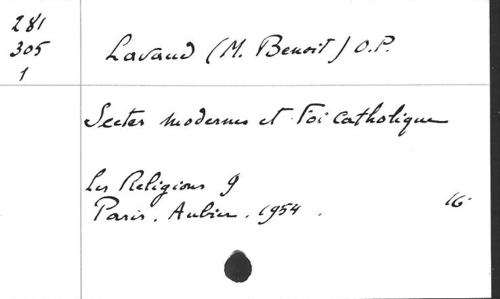 281
305
1
Lavaud (M. Benoit) O.P.
Sectes modernes et Foi catholique
Les Religions 9
Paris. Aubier. 1954.
16.